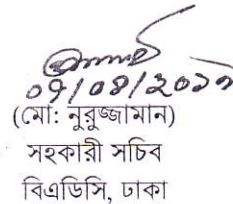 ০৭/০৪/২০১৯
(মো: নুরুজ্জামান)
সহকারী সচিব
বিএডিসি, ঢাকা